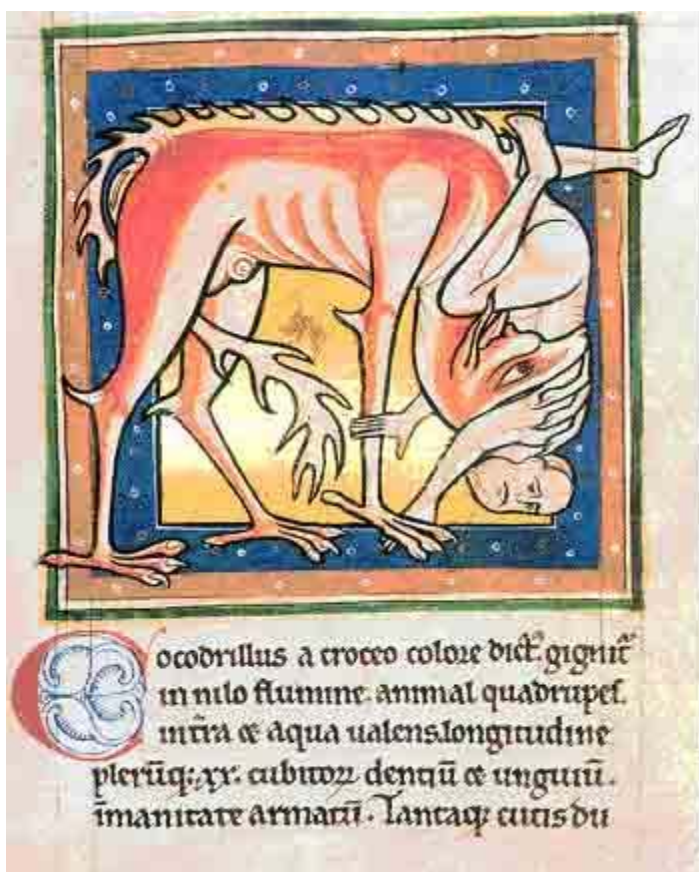 Cocodrillus a croceo colore dict̄. gignit̄
in nilo flumine. animal quadrupes.
in t̄ra & aqua ualens. longitudine
plerūq; .xx. cubitoꝝ dentiū & unguiū.
īmanitate armatū. Tantaq; cutis du